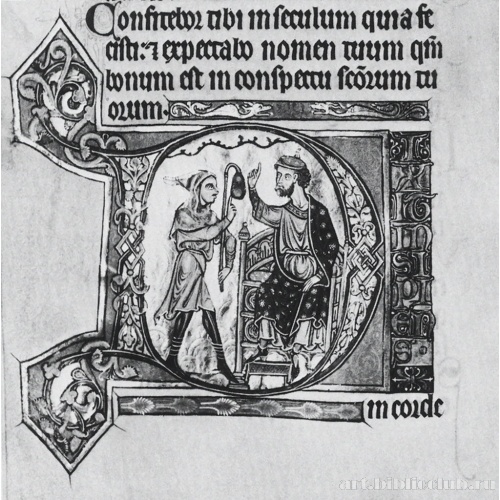 Confitebor tibi in seculum quia fe
cisti: ⁊ expectabo nomen tuum qm̄
bonum est in conspectu scōrum tu
orum.
D
ixi
t in
sipi
ens
in corde
art.biblioclub.ru